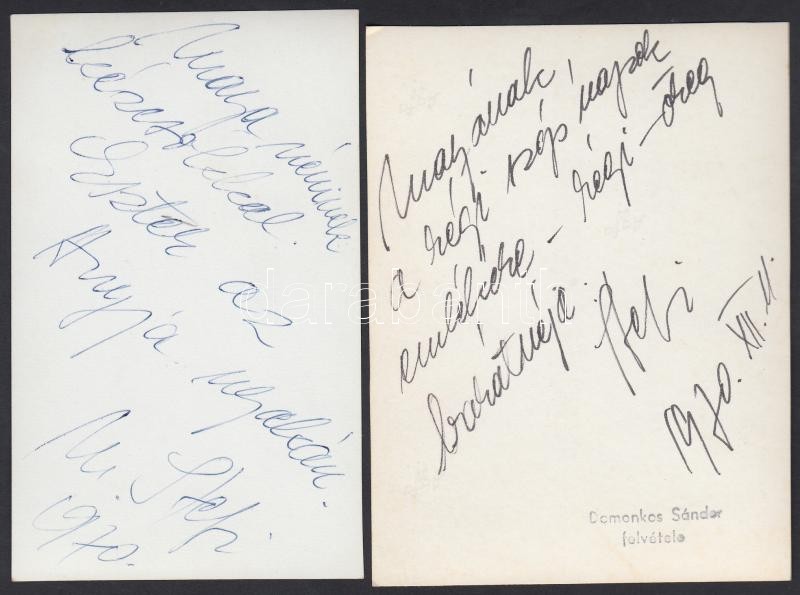 Manya néninek
kézcsókkal
Eszter az
Anyja nyakán.
M. Stefi
1970.
Manyának,
a régi szép napok
emlékére – régi – öreg
barátnője Stefi
1970. XII. 11.
Domonkos Sándor
felvétele
darabanth